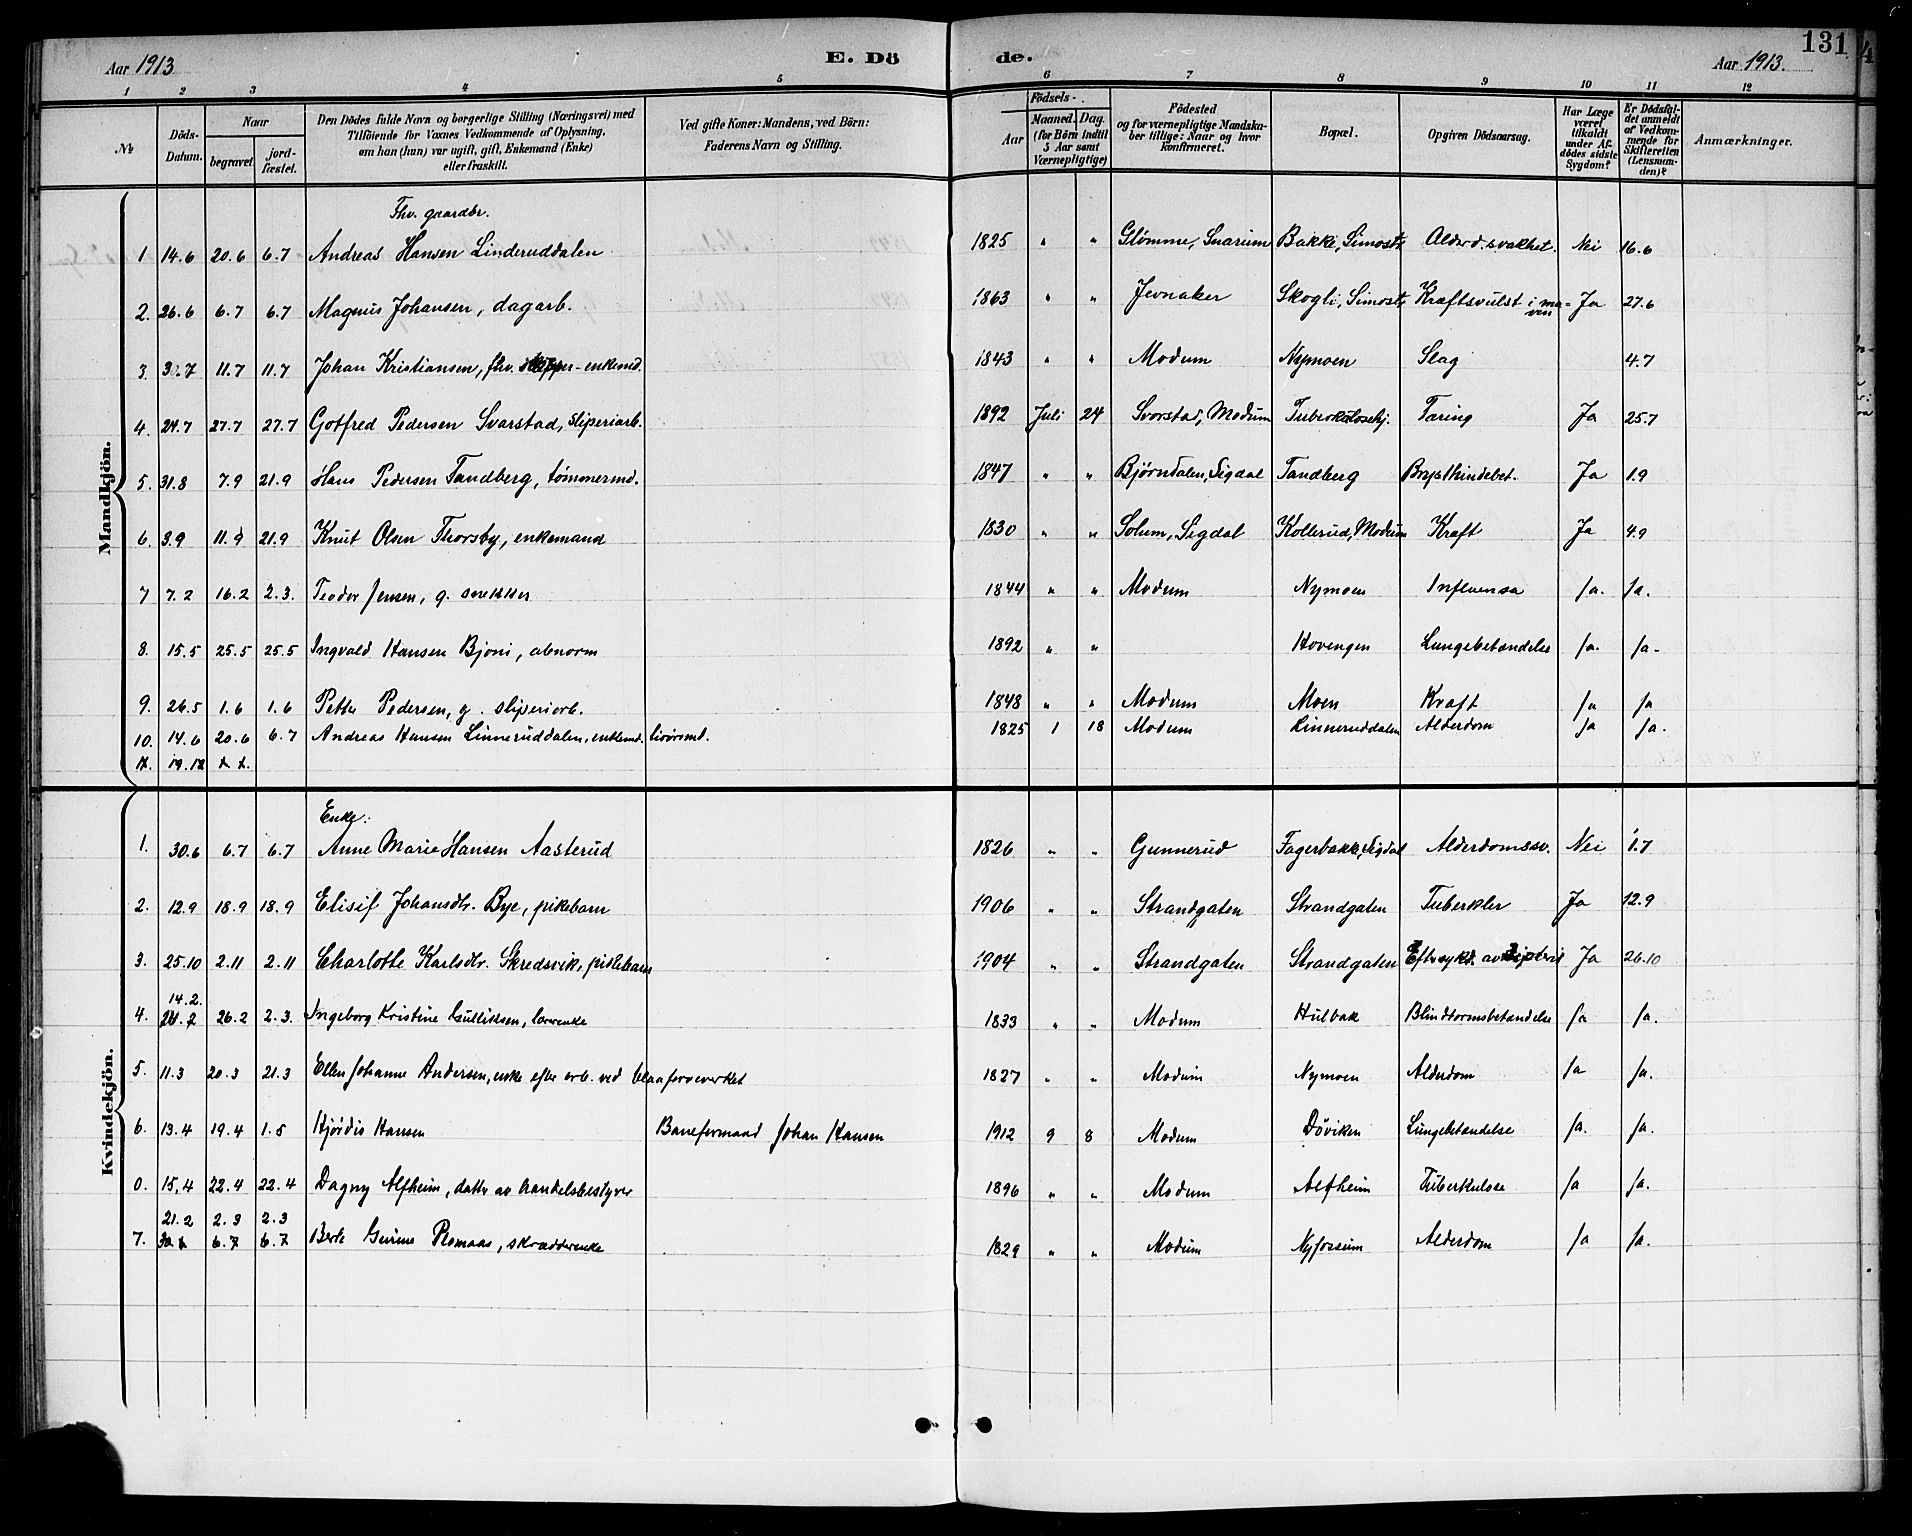 Aar 1913 E. Dö de. Aar 1913. 131
1 2 3 4 5 6 7 8 9 10 11 12
№ Döds-Datum. Naar begravet. jord-fæstet. Den Dödes fulde Navn og borgerlige Stilling (Næringsvei) med Tilföiende for Voxnes Vedkommende af Oplysning, om han (hun) var ugift, gift, Enkemand (Enke) eller fraskilt. Ved gifte Koner: Mandens, ved Börn: Faderens Navn og Stilling. Aar Födsels- Maaned. Dag. (for Börn indtil 5 Aar samt Værnepligtige) Födested og for værnepligtige Mandskaber tillige: Naar og hvor konfirmeret. Bopæl. Opgiven Dödsaarsag. Har Læge været tilkaldt under Afdödes sidste Sygdom? Er Dödsfaldet anmeldt af Vedkommende for Skifteretten (Lensmanden)? Anmærkninger.
Mandkjön.
Fhv. gaardbr.
1 14.6 20.6 6.7 Andreas Hansen Linderuddalen 1825 " " Glømme, Snarum Bakke, Simostr Alderd.svakhet. Nei 16.6
2. 26.6 6.7 6.7 Magnus Johansen, dagarb. 1863 " " Jevnaker Skogli, Simostr Kræftsvulst i ma-ven Ja 27.6
3. 3.7 11.7 11.7 Johan Kristiansen, fhv. - enkemd. 1843 " " Modum Nymoen Slag 4.7
4. 24.7 27.7 27.7 Gotfred Pedersen Svarstad, sliperiarb. 1892 Juli 24 Svorstad, Modum Tuberkulosehj. Tæring Ja 25.7
5. 31.8 7.9 21.9 Hans Pedersen Tandberg, tømmermd. 1847 " " Bjørndalen, Sigdal Tandberg Brysthindebet. Ja 1.9
6. 3.9 11.9 21.9 Knut Olsen Thorsby, enkemand 1830 " " Solum, Sigdal Kollerud, Modum Kræft Ja 4.9
7 7.2 16.2 2.3. Teodor Jensen, g. snekker 1844 " " Modum Nymoen Influensa ja. ja.
8. 15.5 25.5 25.5 Ingvald Hansen Bjoni, abnorm 1892 " " Hovengen Lungebetændelse ja. ja.
9. 26.5 1.6 1.6 Petter Pedersen, g. sliperiarb. 1848 " " Modum Moen Kræft ja ja
10. 14.6 20.6 6.7 Andreas Hansen Linneruddalen, enkemd. livørsmd. 1825 1 18 Modum Linneruddalen Alderdom ja ja.
19.12
Kvindekjön.
Enke:
1. 30.6 6.7 6.7 Anne Marie Hansen Aasterud 1826 " " Gunnerud Fagerbakk, Sigdal Alderdomssv. Nei 1.7
2. 12.9 18.9 18.9 Elisif Johansdtr. Bye, pikebarn 1906 " " Strandgaten Strandgaten Tuberkler Ja 12.9
3. 25.10 2.11 2.11 Charlotte Karlsdtr. Skredsvik, pikebarn 1904 " " Strandgaten Strandgaten Eftersykd. av dipteri Ja 26.10
14.2.
4. 26.2 2.3. Ingeborg Kristine Gulliksen, lærerenke 1833 " " Modum Hulbak Blindtarmsbetændelse ja ja.
5. 11.3 20.3 21.3 Ellen Johanne Andersen, enke efter arb. ved blaafarveverket 1827 " " Modum Nymoen Alderdom ja ja.
6. 13.4 19.4 1.5 Hjørdis Hansen Baneformand Johan Hansen 1912 9 8 Modum Døviken Lungebetændelse ja. ja.
0. 15.4 22.4 22.4 Dagny Alfheim, datter av handelsbestyrer 1896 " " Modum Alfheim Tuberkulose ja ja.
21.2 2.3 2.3
7. 6.7 6.7 Berte Gurine Romaas, skrædderenke 1829 " " Modum Nyfossum Alderdom ja ja.